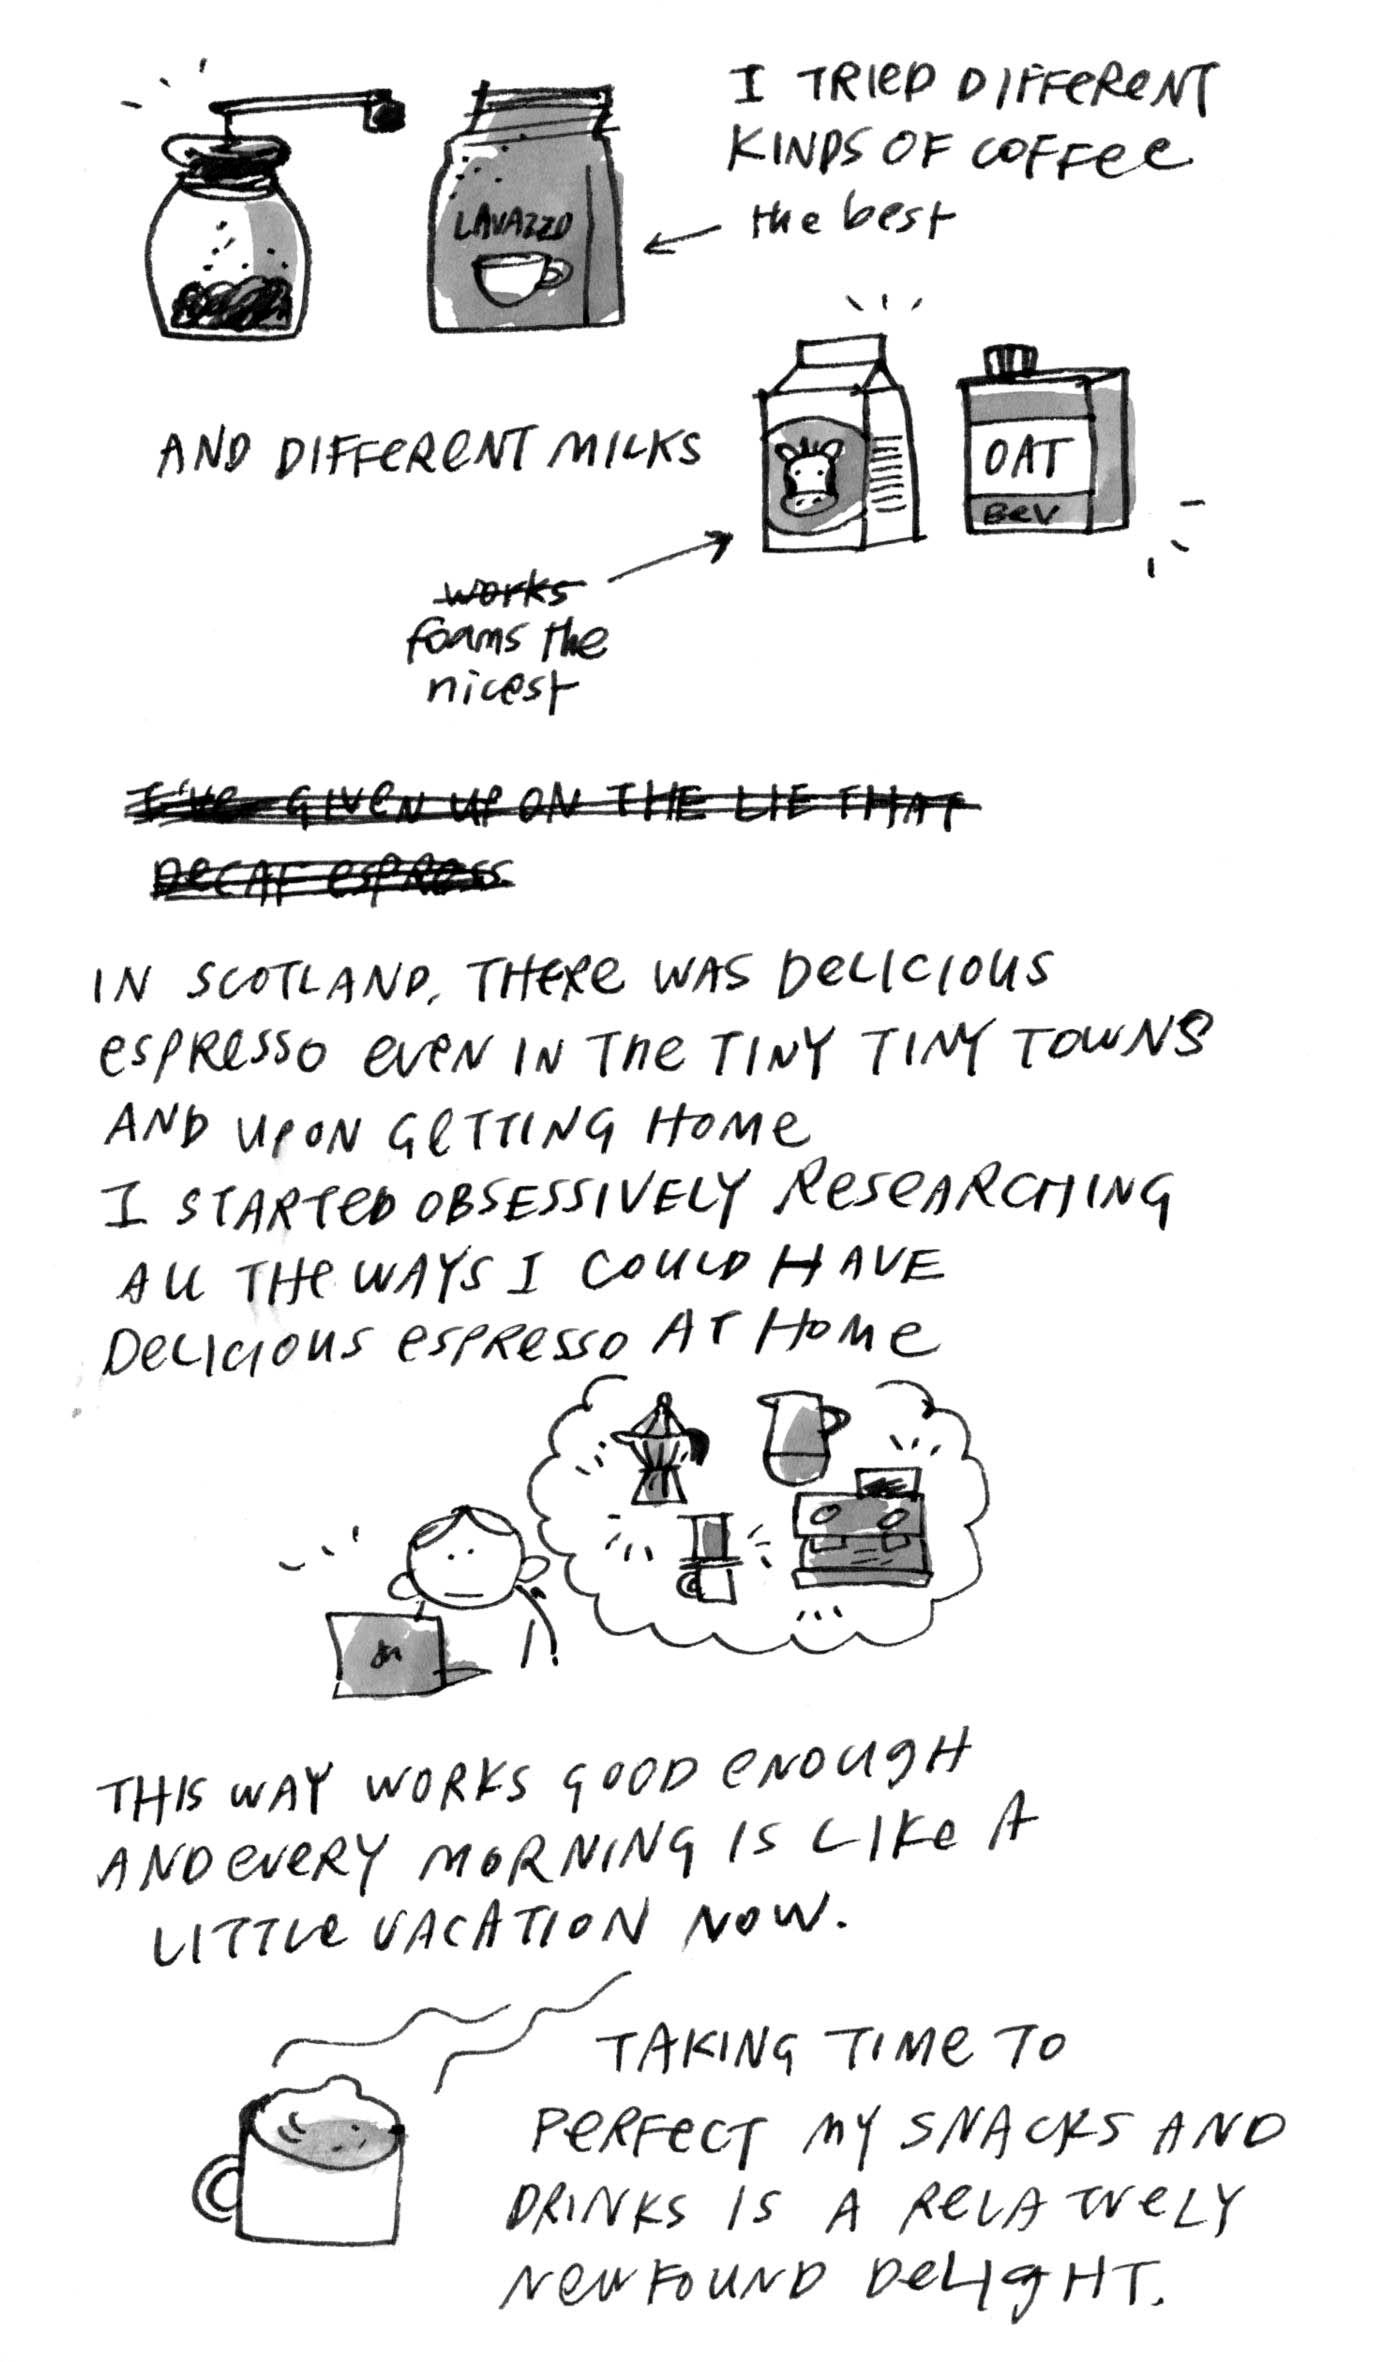 I TRIED DIFFERENT
KINDS OF COFFEE
the best
LAVAZZO
AND DIFFERENT MILKS
OAT
BEV
works
foams the
nicest
I'VE GIVEN UP ON THE LIE THAT
DECAF ESPRESS
IN SCOTLAND, THERE WAS DELICIOUS
ESPRESSO EVEN IN THE TINY TINY TOWNS
AND UPON GETTING HOME
I STARTED OBSESSIVELY RESEARCHING
ALL THE WAYS I COULD HAVE
DELICIOUS ESPRESSO AT HOME
THIS WAY WORKS GOOD ENOUGH
AND EVERY MORNING IS LIKE A
LITTLE VACATION NOW.
TAKING TIME TO
PERFECT MY SNACKS AND
DRINKS IS A RELATIVELY
NEWFOUND DELIGHT.